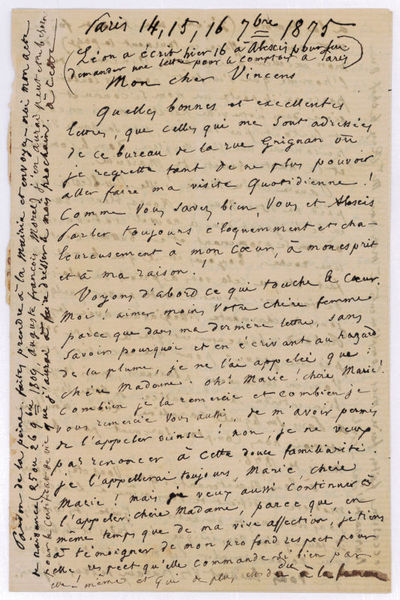 Paris 14, 15, 16 7bre 1875
(Léon a écrit hier 16 à Alexis pour lui
demander une lettre pour le comptoir à Paris)
Mon cher Vincens
Quelles bonnes et excellentes
lettres, que celles qui me sont adressées
de ce bureau de la rue Grignan où
je regrette tant de ne plus pouvoir
aller faire ma visite quotidienne !
Comme vous savez bien, vous et Alexis
parler toujours éloquemment et cha-
leureusement à mon cœur, à mon esprit
et à ma raison !
Voyons d'abord ce qui touche le cœur.
Moi ! aimer moins votre chère femme
parce que dans ma dernière lettre, sans
savoir pourquoi et en écrivant au hazard
de la plume, je ne l'ai appelée que :
chère Madame. oh ! Marie, chère Marie !
combien je la remercie et combien je
vous remercie vous aussi, de m'avoir permis
de l'appeler ainsi ! non, je ne veux
pas renoncer à cette douce familiarité.
je l'appellerai toujours, Marie, chère
Marie ! mais je veux aussi continuer à
l'appeler : chère Madame, parce que, en
même temps que de ma vive affection, je tiens
à témoigner de mon profond respect pour
elle respect qu'elle commande si bien par
elle-même et qui de plus est dû à la femme
Pardon de la peine faites prendre à la Mairie et envoyez-moi mon acte
de naissance, 25 ou 26 9bre 1809, auguste françois Morel, j'en aurai peut-être besoin
pour le certificat de vie que j'aurai à faire dresser le mois prochain. à Cette